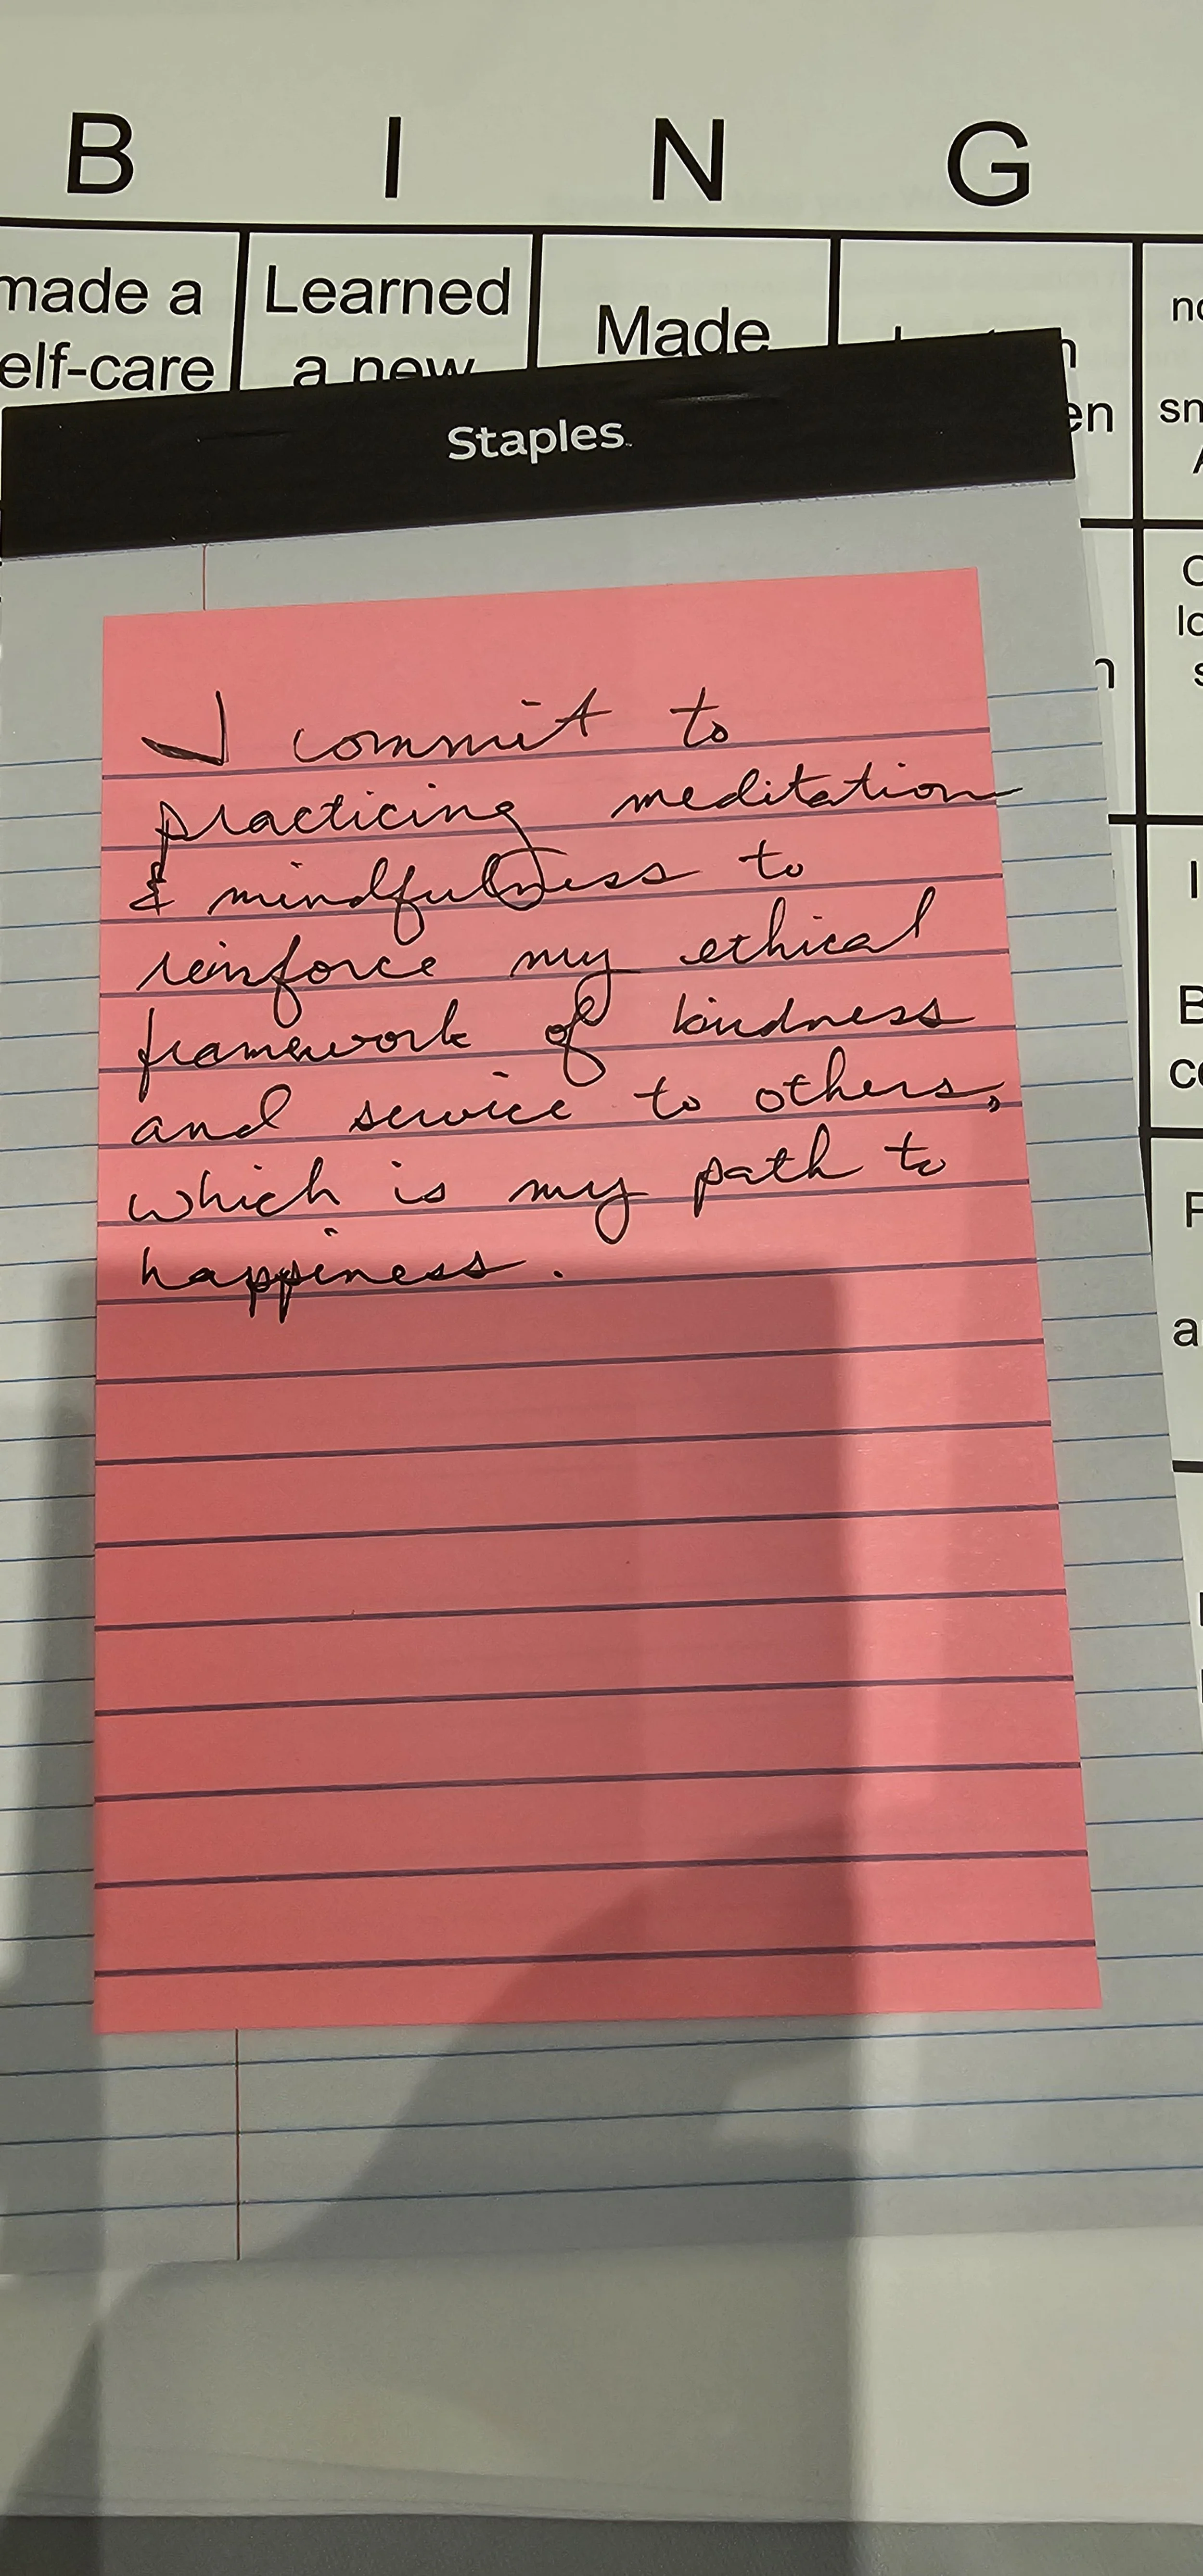 B I N G
made a Learned Made
elf-care a new
Staples
I commit to
practicing meditation
& mindfulness to
reinforce my ethical
framework of kindness
and service to others,
which is my path to
happiness.